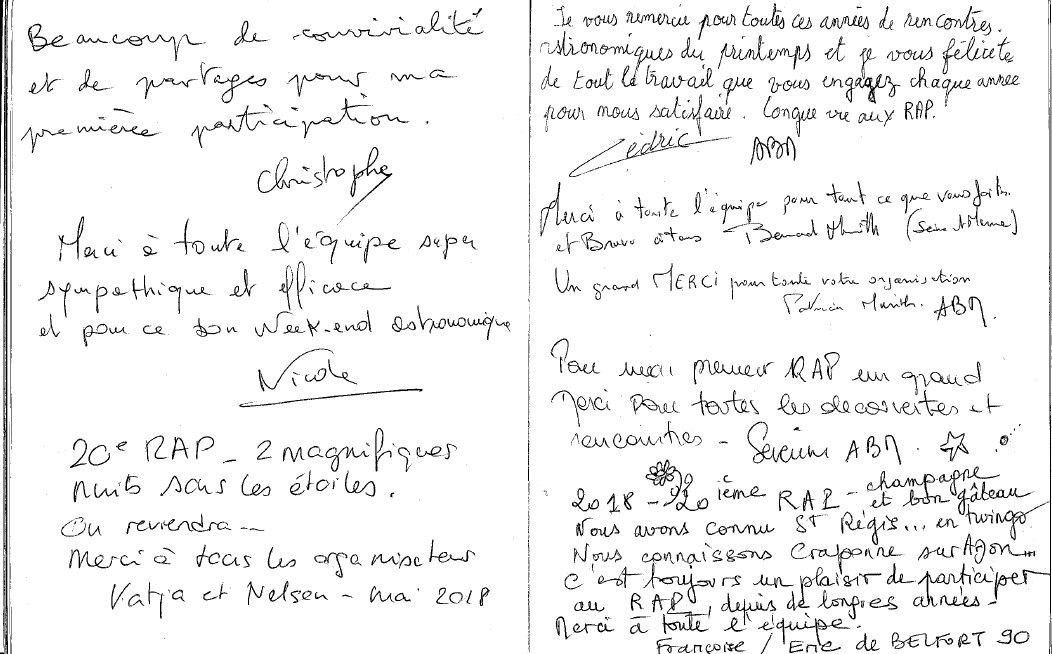 Beaucoup de convivialité
et de partages pour ma
première participation.
Christophe
Merci à toute l'équipe super
sympathique et efficace
et pour ce bon Week-end astronomique
Nicole
20e RAP - 2 magnifiques
nuits sous les étoiles.
On reviendra --
Merci à tous les organisateurs
Katja et Nelsen - mai 2018
Je vous remercie pour toutes ces années de rencontres
astronomiques du printemps et je vous félicite
de tout le travail que vous engagez chaque année
pour nous satisfaire. Longue vie aux RAP.
Cédric ABN
Merci à toute l'équipe pour tant ce que vous faites
et Bravo à tous Bernard (Seine et Marne)
Un grand MERCI pour toute votre organisation
ABN.
Pour mon premier RAP un grand
Merci pour toutes les découvertes et
rencontres - Séverine ABN.
2018 - 20ième RAP - champagne
et bon gâteau
Nous avons connu St Régis... en twingo
Nous connaissons Craponne sur Arzon...
C'est toujours un plaisir de participer
au RAP, depuis de longues années -
Merci à toute l'équipe.
Françoise / Eric de BELFORT 90